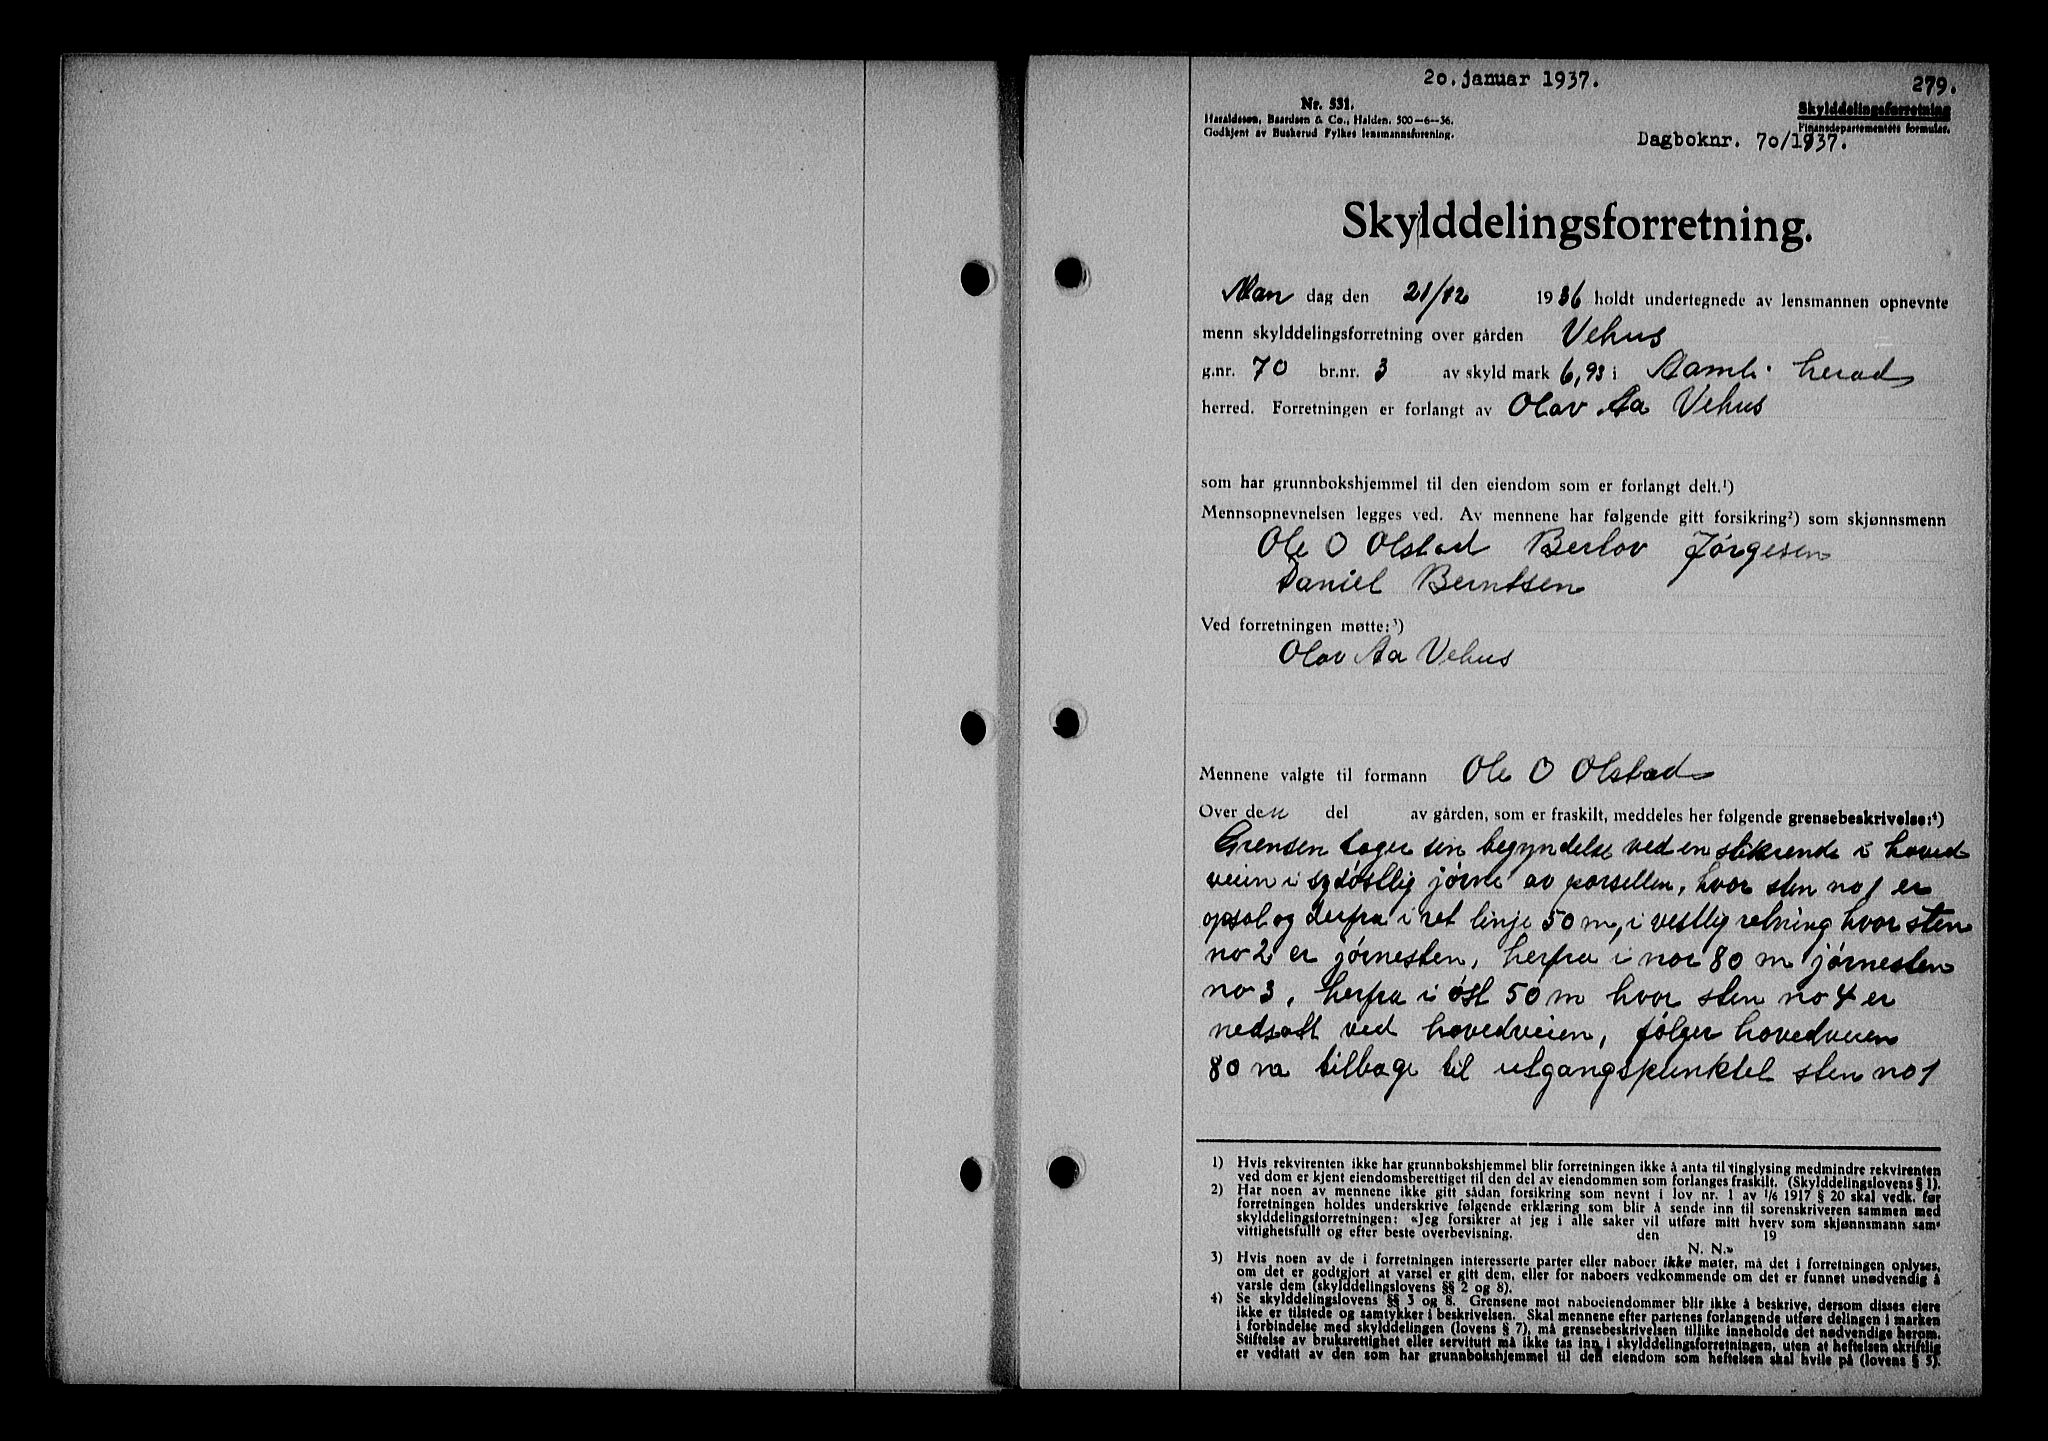 20. januar 1937.
279.
Nr. 531.
Haraldssen, Baardsen & Co., Halden. 500—6—36.
Godkjent av Buskerud Fylkes lensmannsforening.
Skylddelingsforretning
Finansdepartementets formular.
Dagboknr. 70/1937.
Skylddelingsforretning.
Man dag den 21/12 1936 holdt undertegnede av lensmannen opnevnte
menn skylddelingsforretning over gården Vehus
g.nr. 70 br.nr. 3 av skyld mark 6,93 i Aamli herad
herred. Forretningen er forlangt av Olav Aa Vehus
som har grunnbokshjemmel til den eiendom som er forlangt delt.¹)
Mennsopnevnelsen legges ved. Av mennene har følgende gitt forsikring²) som skjønnsmenn
Ole O Olstad Berlov Jørgesen
Daniel Berntsen
Ved forretningen møtte:³)
Olav Aa Vehus
Mennene valgte til formann Ole O Olstad
Over den del av gården, som er fraskilt, meddeles her følgende grensebeskrivelse:⁴)
Grensen tager sin begyndelse ved en stikrende i hoved
veien i sydøstlig jørne av parsellen, hvor sten no 1 er
opsat og derfra i ret linje 50 m, i vestlig retning hvor sten
no 2 er jørnesten, herfra i nor 80 m jørnesten
no 3, herfra i øst 50 m hvor sten no 4 er
nedsatt ved hovedveien, følger hovedveien
80 m tilbage til utgangspunktet sten no 1
1) Hvis rekvirenten ikke har grunnbokshjemmel blir forretningen ikke å anta til tinglysing medmindre rekvirenten
ved dom er kjent eiendomsberettiget til den del av eiendommen som forlanges fraskilt. (Skylddelingslovens § 1).
2) Har noen av mennene ikke gitt sådan forsikring som nevnt i lov nr. 1 av 1/6 1917 § 20 skal vedk. før
forretningen holdes underskrive følgende erklæring som blir å sende inn til sorenskriveren sammen med
skylddelingsforretningen: «Jeg forsikrer at jeg i alle saker vil utføre mitt hverv som skjønnsmann sam-
vittighetsfullt og efter beste overbevisning. den 19
N. N.»
3) Hvis noen av de i forretningen interesserte parter eller naboer ikke møter, må det i forretningen oplyses,
om det er godtgjort at varsel er gitt dem, eller for naboers vedkommende om det er funnet unødvendig å
varsle dem (skylddelingslovens §§ 2 og 8).
4) Se skylddelingslovens §§ 3 og 8. Grensene mot naboeiendommer blir ikke å beskrive, dersom disses eiere
ikke er tilstede og samtykker i beskrivelsen. Skal mennene efter partenes forlangende utføre delingen i marken
i forbindelse med skylddelingen (lovens § 7), må grensebeskrivelsen tillike inneholde det nødvendige herom.
Stiftelse av bruksrettighet eller servitutt må ikke tas inn i skylddelingsforretningen, uten at heftelsen skriftlig
er vedtatt av den som har grunnbokshjemmel til den eiendom som heftelsen skal hvile på (lovens § 5).